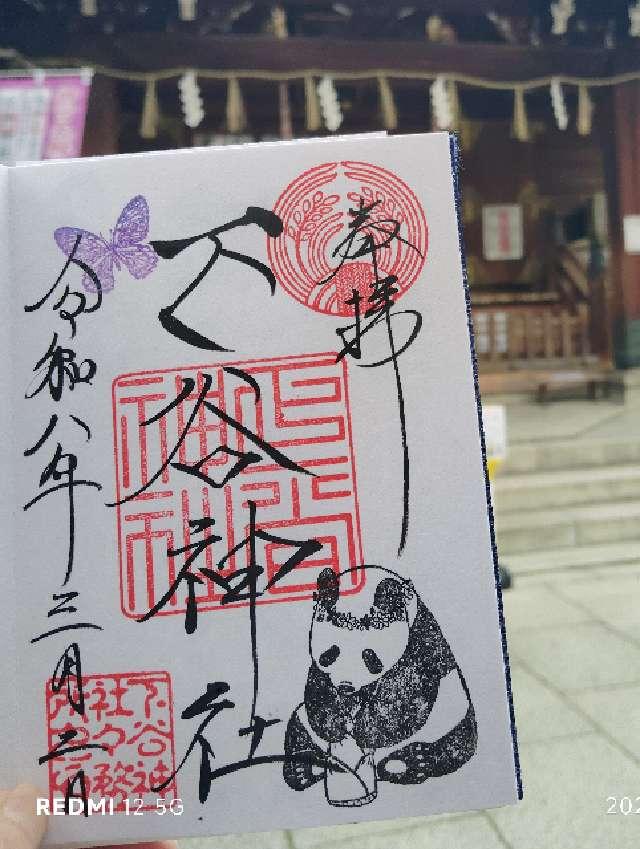 奉拝
下谷神社
令和八年三月二日
下谷神社
下谷神
社々務
REDMI 12 5G
202